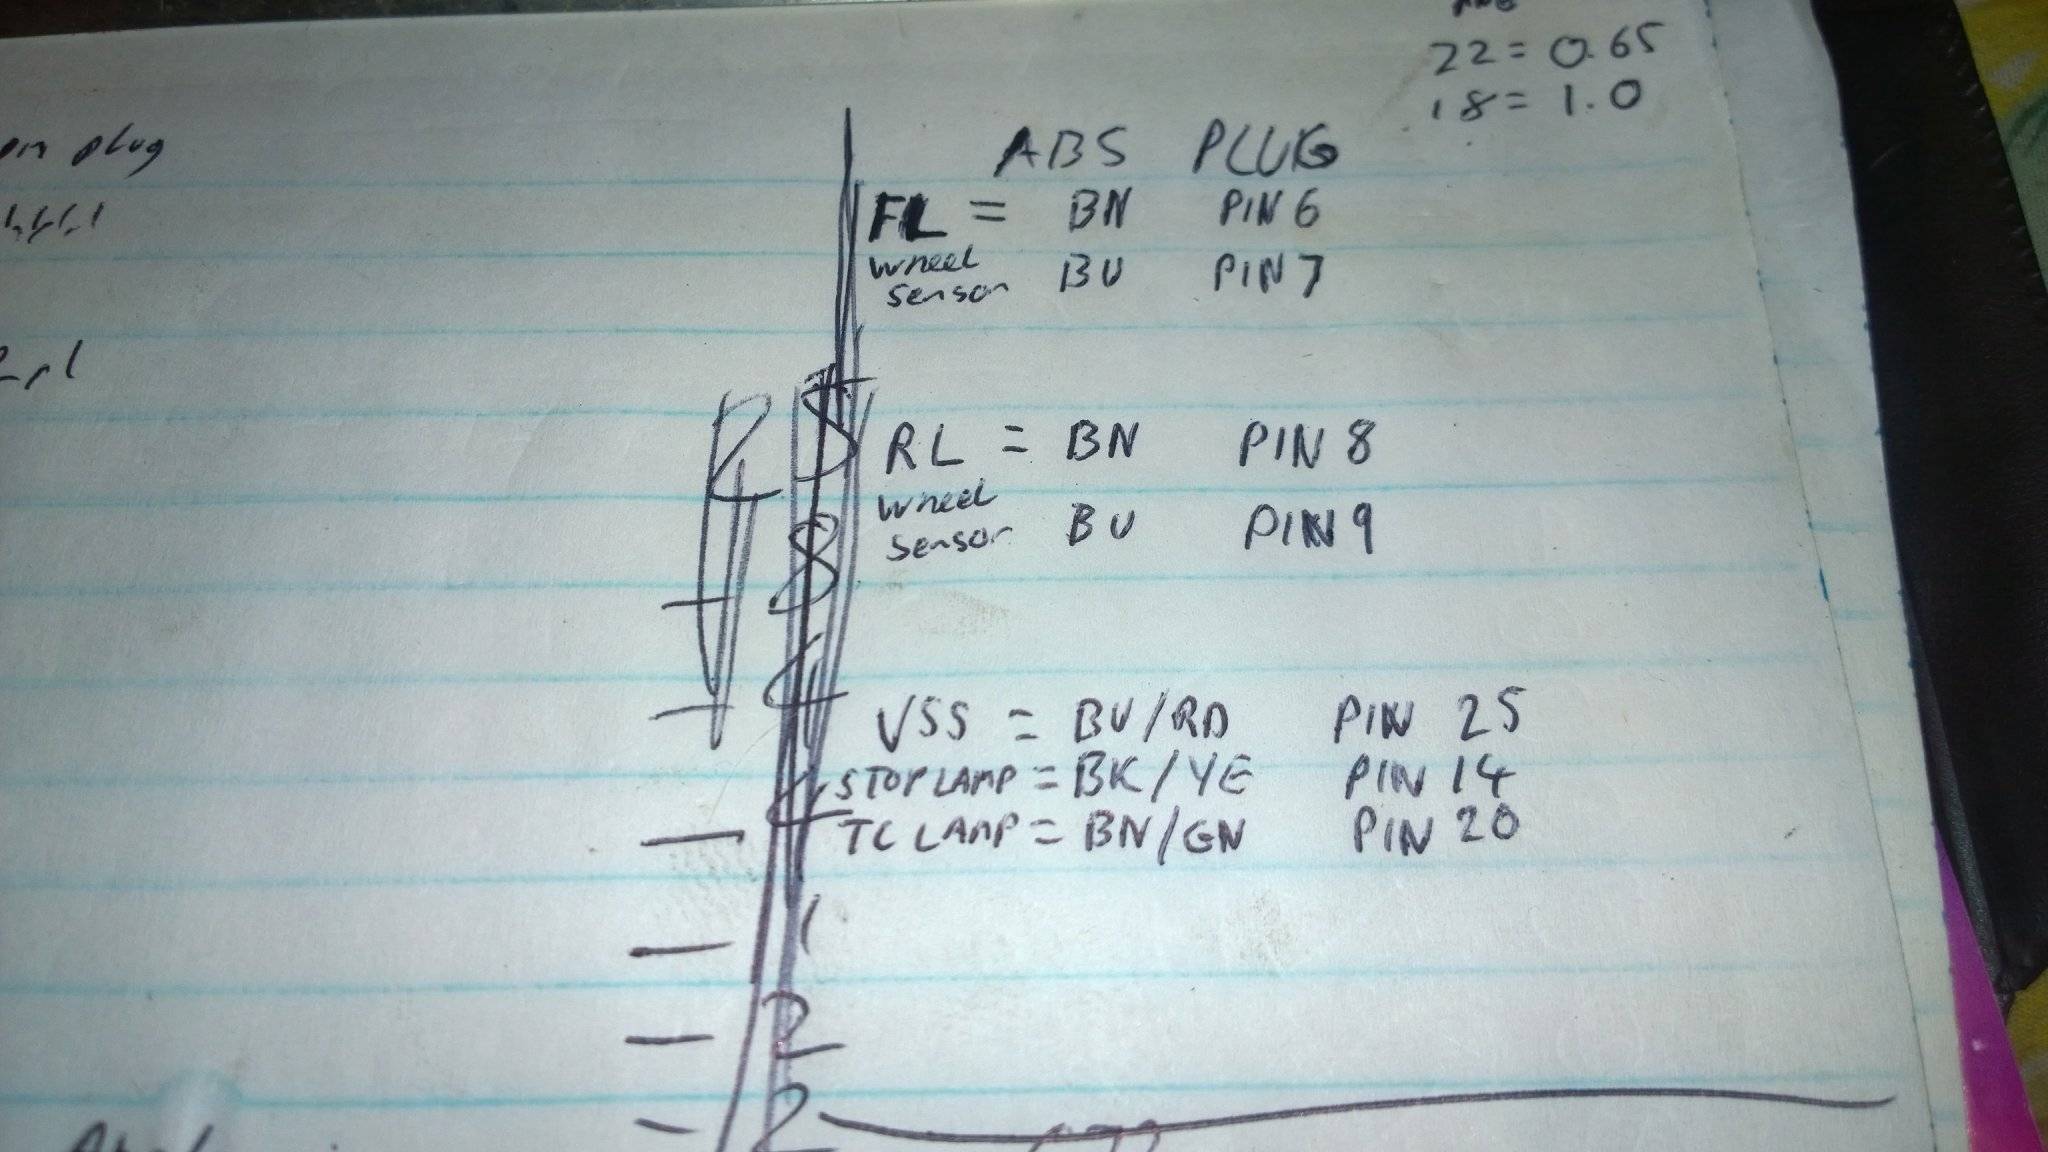 22 = 0.65
18 = 1.0
plug
ABS PLUG
FL = BN PIN 6
wheel
sensor BU PIN 7
RL = BN PIN 8
wheel
sensor BU PIN 9
VSS = BU/RD PIN 25
STOP LAMP = BK/YE PIN 14
TC LAMP = BN/GN PIN 20
2
8
1
- 2
- 2